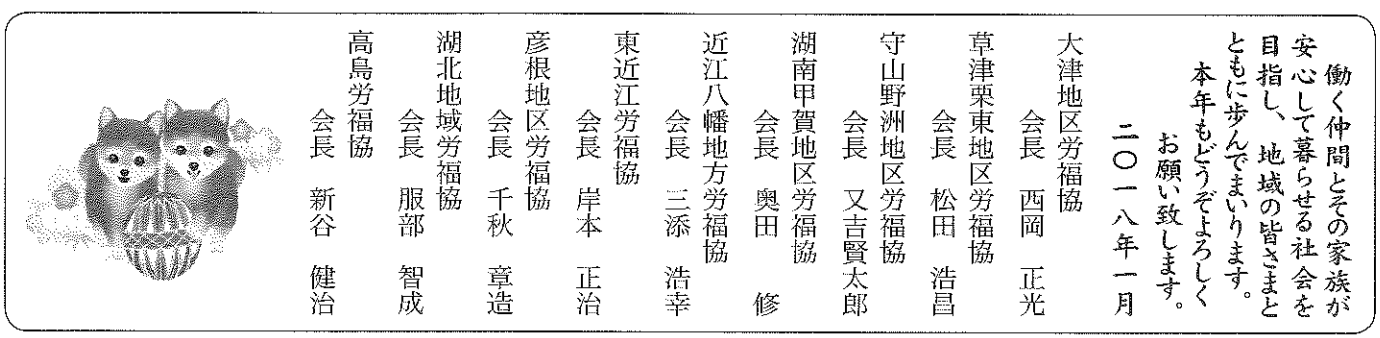 働く仲間とその家族が
安心して暮らせる社会を
目指し、地域の皆さまと
ともに歩んでまいります。
本年もどうぞよろしく
お願い致します。
二〇一八年一月
大津地区労福協
会長 西岡 正光
草津栗東地区労福協
会長 松田 浩昌
守山野洲地区労福協
会長 又吉賢太郎
湖南甲賀地区労福協
会長 奥田 修
近江八幡地方労福協
会長 三添 浩幸
東近江労福協
会長 岸本 正治
彦根地区労福協
会長 千秋 章造
湖北地域労福協
会長 服部 智成
高島労福協
会長 新谷 健治